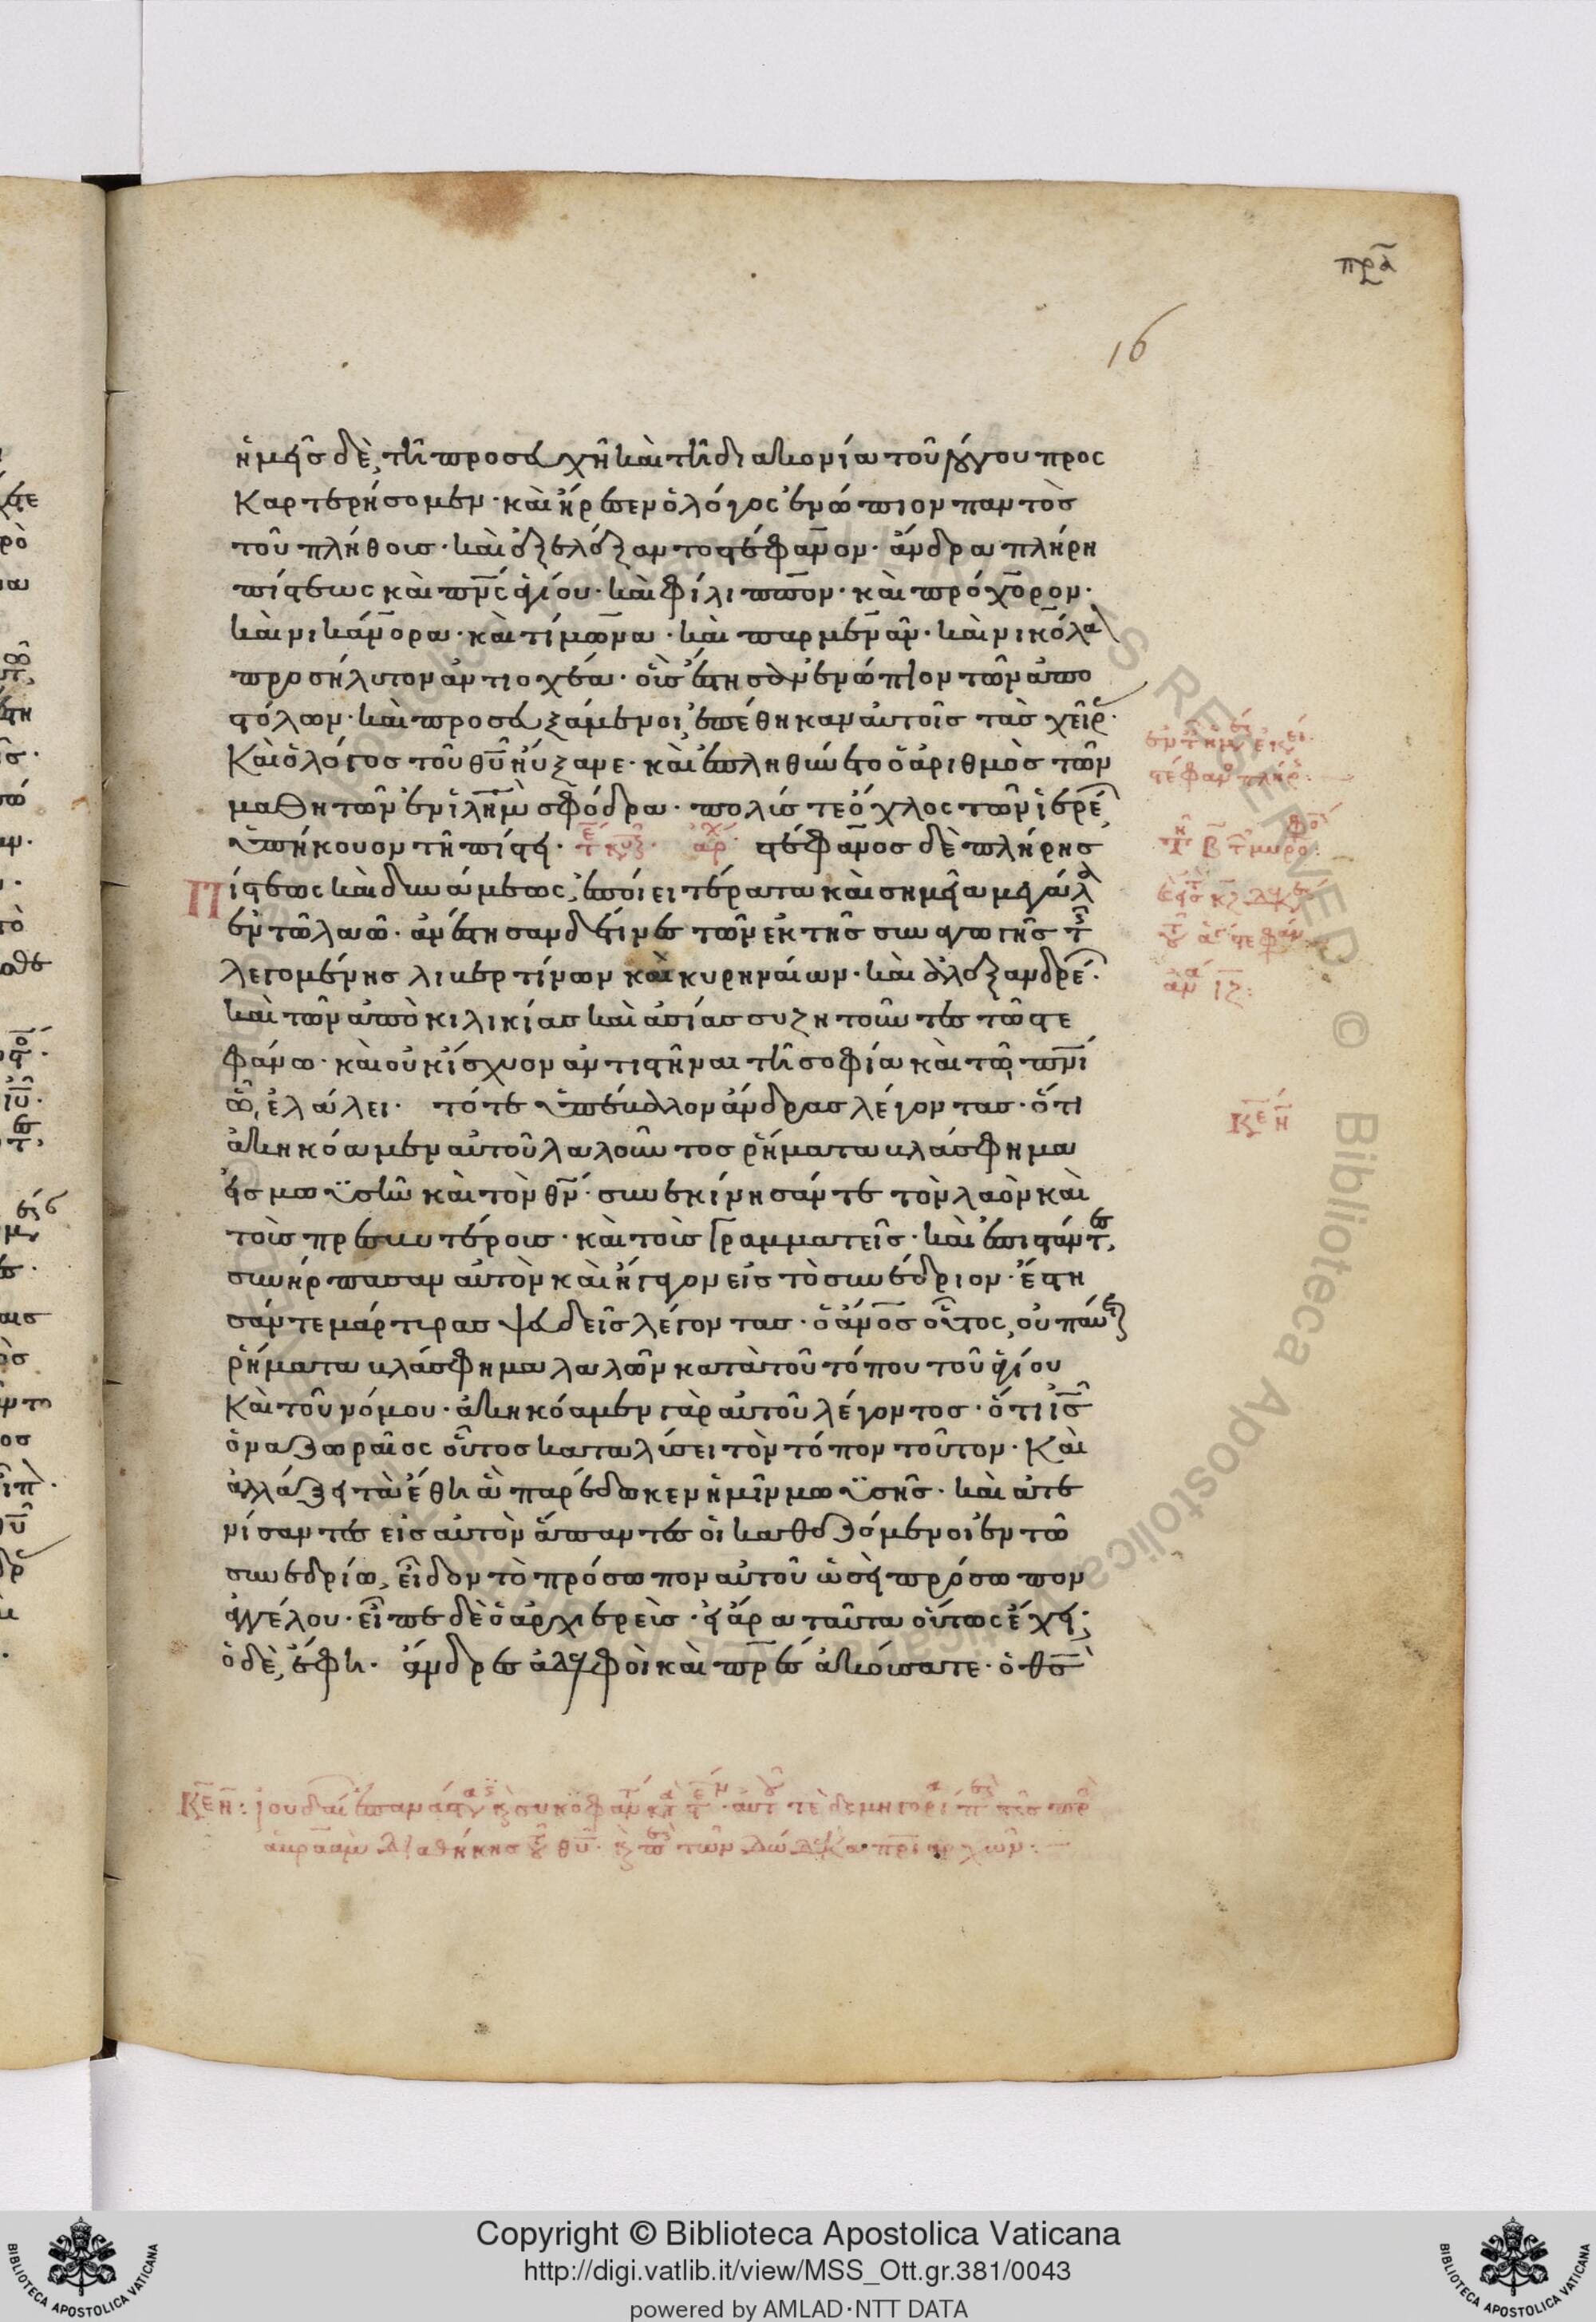 πρᾶ
16
ἡμεῖς δὲ, τῆ προσευχῆ καὶ τῆ διακονία του λόγου προς
Καρτερήσομεν· καὶ ἤρεσεν ὁ λόγος ἐνώπιον παντὸς
τοῦ πλήθους· καὶ ἐξελέξαντο στέφανον· ἄνδρα πλήρη
πίστεως καὶ πν̅ς ἁγίου· καὶ φίλιππον· καὶ πρόχορον·
καὶ νικάνορα· καὶ τίμωνα· καὶ παρμενᾶν· καὶ νικόλα
προσήλυτον ἀντιοχέα· οὓς ἔστησαν ἐνώπιον τῶν ἀπο
στόλων· καὶ προσευξάμενοι, ἐπέθηκαν αὐτοῖς τὰς χεῖρ·
Καὶ ὁ λόγος τοῦ θυ̅ ηὔξανε· καὶ ἐπληθύνετο ὁ ἀριθμὸς τῶν
μαθητῶν ἐν ἱλη̅μ σφόδρα· πολύς τε ὄχλος τῶν ἱερέ
ὑπήκουον τῆ πίστει· στέφανος δὲ πλήρης
Πίστεως καὶ δυνάμεως, ἐποίει τέρατα καὶ σημεῖα μεγάλ
ἐν τῶ λαῶ· ἀνέστησαν δέ τινες τῶν ἐκ τῆς συναγωγῆς τ
λεγομένης λιβερτίνων καὶ κυρηναίων· καὶ ἀλεξανδρέ·
καὶ τῶν ἀπὸ κιλικίας καὶ ἀσίας συζητοῦντες τῶ στε
φάνω· καὶ οὐκ ἴσχυον ἀντιστῆναι τῆ σοφία καὶ τῶ πν̅ι
ὧ, ἐλάλει· τότε ὑπέβαλλον ἄνδρας λέγοντας· ὅτι
ἀκηκόαμεν αὐτοῦ λαλοῦντος ῥήματα βλάσφημα
εἰς μωϋσῆν καὶ τὸν θν̅· συνεκίνησάν τε τὸν λαὸν καὶ
τοὺς πρεσβυτέρους· καὶ τοὺς γραμματεῖς· καὶ ἐπιστάντες,
συνήρπασαν αὐτὸν καὶ ἤγαγον εἰς τὸ συνέδριον· ἔστη
σάν τε μάρτυρας ψευδεῖς λέγοντας· ὁ ἄνο̅ς οὗτος, οὐ παύε
ῥήματα βλάσφημα λαλῶν κατὰ τοῦ τόπου τοῦ ἁγίου
Καὶ τοῦ νόμου· ἀκηκόαμεν γὰρ αὐτοῦ λέγοντος· ὅτι ἰς̅
ὁ ναζωραῖος οὗτος καταλύσει τὸν τόπον τοῦτον· Καὶ
ἀλλάξει τὰ ἔθη ἃ παρέδωκεν ἡμῖν μωϋσῆς· καὶ ἀτε
νίσαντες εἰς αὐτὸν ἅπαντες οἱ καθεζόμενοι ἐν τῶ
συνεδρίω, εἶδον τὸ πρόσωπον αὐτοῦ ὡσεὶ πρόσωπον
ἀγγέλου· εἶπε δὲ ὁ ἀρχιερεὺς· εἰ ἄρα ταῦτα οὕτως ἔχει;
ὁ δὲ, ἔφη· ἄνδρες ἀδελφοὶ καὶ πρ̅ες ἀκούσατε· ὁ θς̅
Copyright © Biblioteca Apostolica Vaticana
http://digi.vatlib.it/view/MSS_Ott.gr.381/0043
powered by AMLAD·NTT DATA